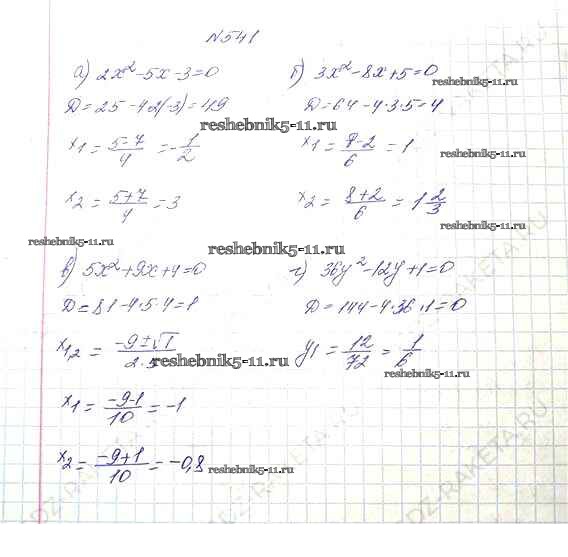 №541
а) 2x²-5x-3=0
D=25-4·2(-3)=49
x1 = 5-7/4 = -1/2
x2 = 5+7/4 = 3
б) 3x²-8x+5=0
D=64-4·3·5=4
x1 = 8-2/6 = 1
x2 = 8+2/6 = 1 2/3
в) 5x²+9x+4=0
D=81-4·5·4=1
x1,2 = -9±√1/2·5
x1 = -9-1/10 = -1
x2 = -9+1/10 = -0,8
г) 36y²-12y+1=0
D=144-4·36·1=0
y1 = 12/72 = 1/6
reshebnik5-11.ru
reshebnik5-11.ru
reshebnik5-11.ru
reshebnik5-11.ru
reshebnik5-11.ru
reshebnik5-11.ru
reshebnik5-11.ru
reshebnik5-11.ru
reshebnik5-11.ru
GDZ-RAKETA.RU
GDZ-RAKETA.RU
GDZ-RAKETA.RU